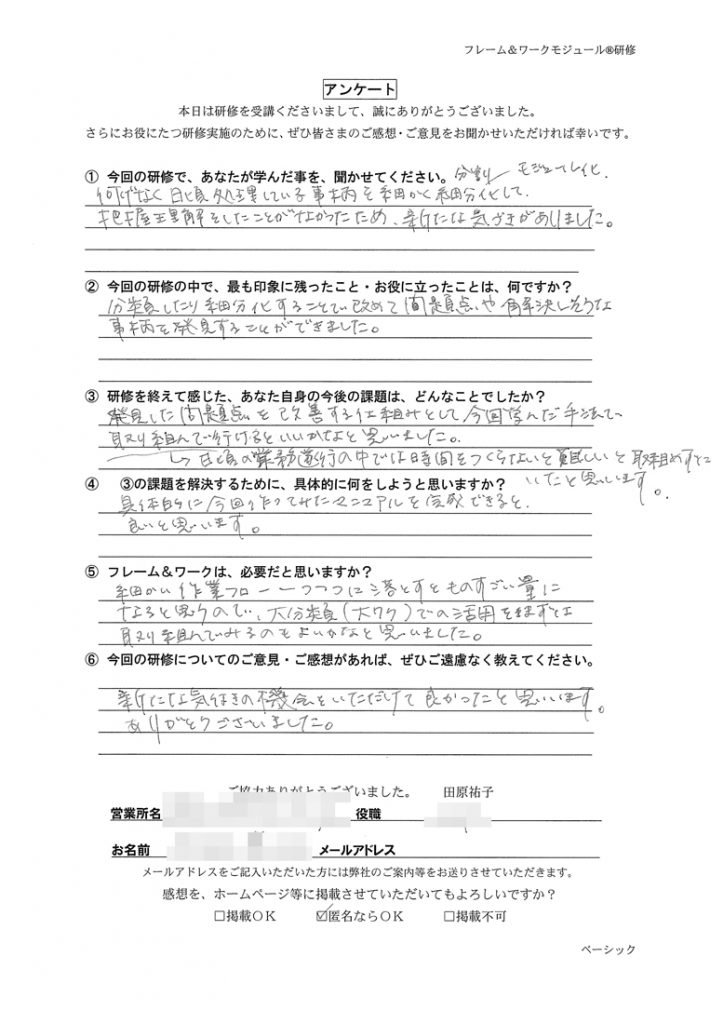 フレーム＆ワークモジュール®研修
アンケート
本日は研修を受講くださいまして、誠にありがとうございました。
さらにお役にたつ研修実施のために、ぜひ皆さまのご感想・ご意見をお聞かせいただければ幸いです。
① 今回の研修で、あなたが学んだ事を、聞かせてください。分割／モジュール化．
何げなく日頃処理している事柄を細かく細分化して．
把握理解をしたことがなかったため、新たな気づきがありました。
② 今回の研修の中で、最も印象に残ったこと・お役に立ったことは、何ですか？
分類したり細分化することで改めて問題点や解決しそうな
事柄を発見することができました。
③ 研修を終えて感じた、あなた自身の今後の課題は、どんなことでしたか？
発見した問題点を改善する仕組みとして今回学んだ手法で、
取り組んで行けるといいかなと思いました。
↳日頃の業務遂行の中では時間をつくらないと難しいと
いたと思います。
④ ③の課題を解決するために、具体的に何をしようと思いますか？
具体的に今回作ってみたマニュアルを できると．
良いと思います。
⑤ フレーム＆ワークは、必要だと思いますか？
細かい作業フロー一つ一つに落とすとものすごい量に
なると思うので、大分類（大ワク）での活用をまずは
取り組んでみるのもよいかなと思いました。
⑥ 今回の研修についてのご意見・ご感想があれば、ぜひご遠慮なく教えてください。
新たな気付きの機会をいただけて良かったと思います。
ありがとうございました。
ご協力ありがとうございました。 田原祐子
営業所名 役職
お名前 メールアドレス
メールアドレスをご記入いただいた方には弊社のご案内等をお送りさせていただきます。
感想を、ホームページ等に掲載させていただいてもよろしいですか？
□掲載ＯＫ ☑匿名ならＯＫ □掲載不可
ベーシック